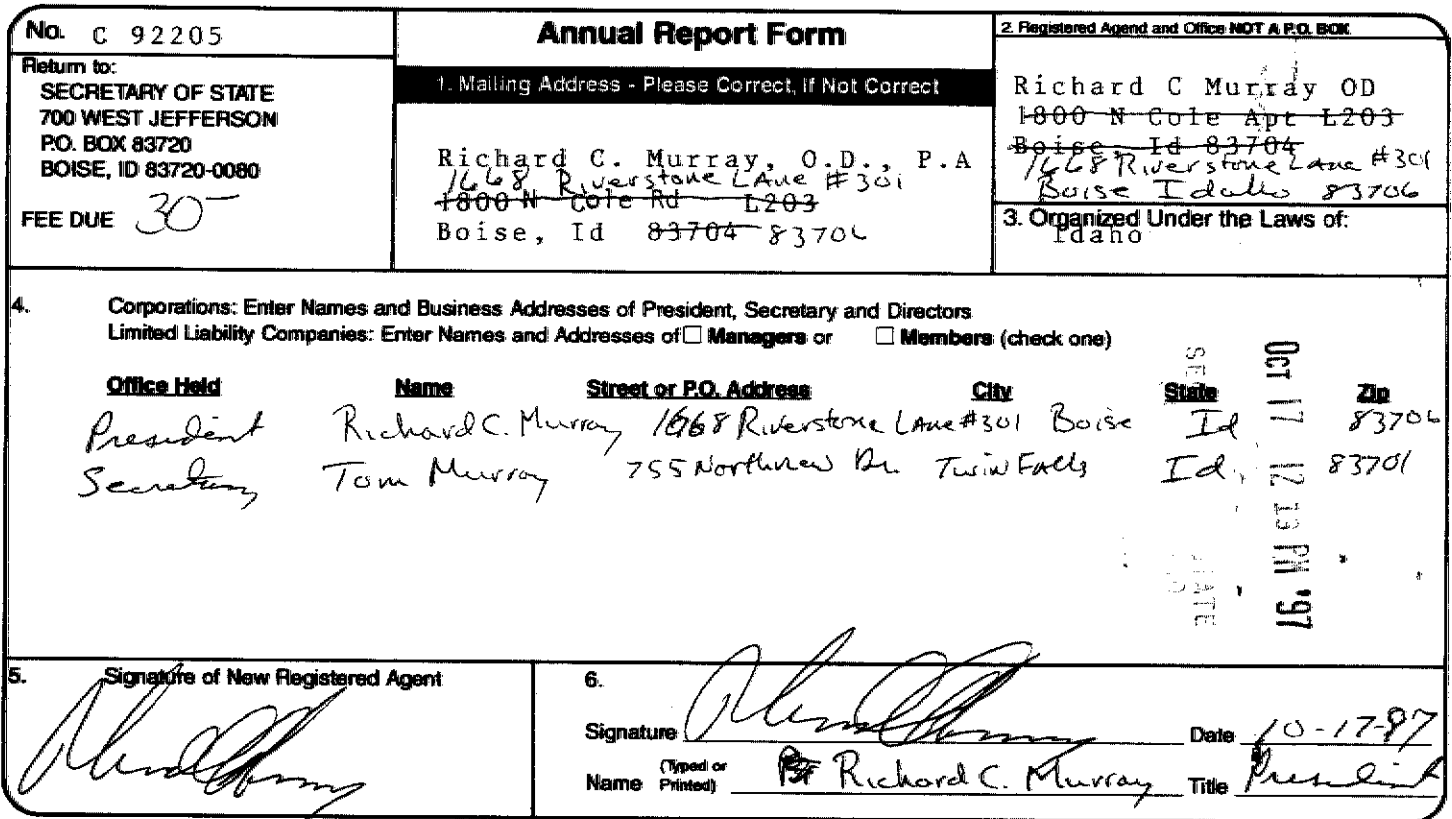 No. C 92205
Return to:
SECRETARY OF STATE
700 WEST JEFFERSON
P.O. BOX 83720
BOISE, ID 83720-0080
FEE DUE 30-
Annual Report Form
1. Mailing Address - Please Correct, If Not Correct
Richard C. Murray, O.D., P.A
1668 Riverstone LAne #301
1800 N Cole Rd L203
Boise, Id 83704 83706
2. Registered Agend and Office NOT A P.O. BOX
Richard C Murray OD
1800 N Cole Apt L203
Boise, Id 83704
1668 Riverstone Lane #301
Boise Idaho 83706
3. Organized Under the Laws of:
Idaho
4. Corporations: Enter Names and Business Addresses of President, Secretary and Directors
Limited Liability Companies: Enter Names and Addresses of ☐ Managers or ☐ Members (check one)
Office Held Name Street or P.O. Address City State Zip
President Richard C. Murray 1668 Riverstone LAne #301 Boise Id 83706
Secretary Tom Murray 755 Northview Dr. Twin Falls Id, 83701
OCT 17 12 13 PM '97
5. Signature of New Registered Agent
6.
Signature Date 10-17-97
Name (Typed or Printed) Richard C. Murray Title President